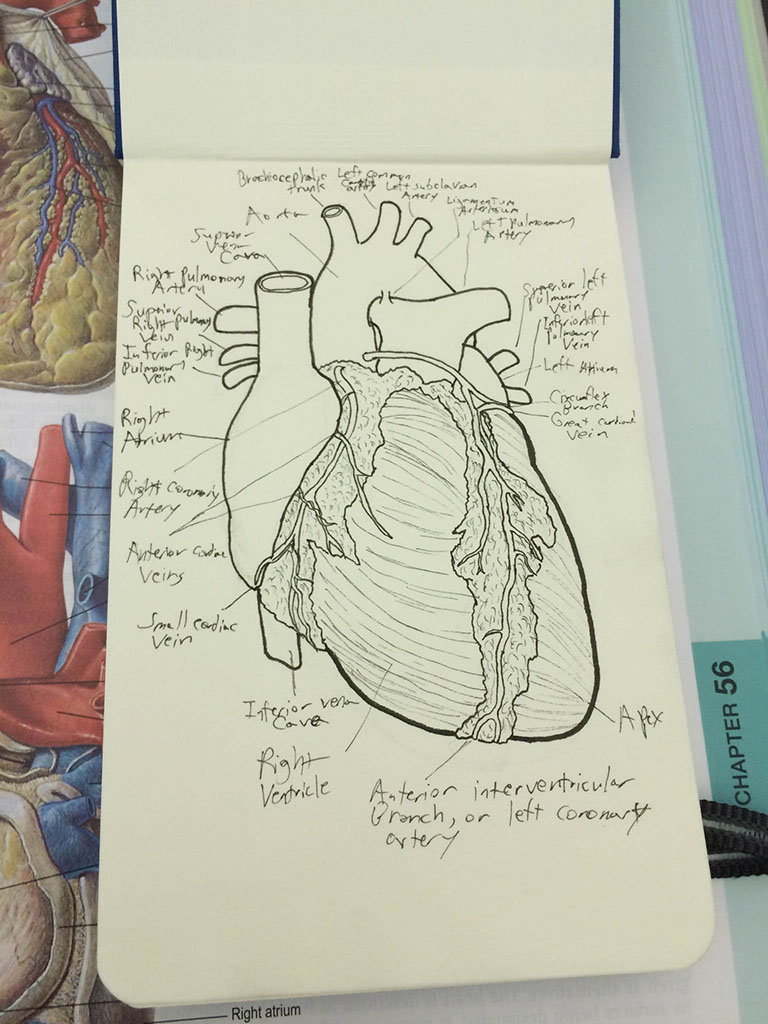 Brachiocephalic
trunk
Left common
Carotid
artery
Left subclavian
Artery
Ligamentum
Arteriosum
Left Pulmonary
Artery
Aorta
Superior
Vena
Cava
Right Pulmonary
Artery
Superior
Right Pulmonary
Vein
Inferior Right
Pulmonary
vein
Right
Atrium
Right coronary
Artery
Anterior cardiac
Veins
Small cardiac
vein
Superior left
Pulmonary
vein
Inferior left
Pulmonary
Vein
Left Atrium
Circumflex
Branch
Great cardiac
vein
Inferior vena
Cava
Right
Ventricle
Anterior interventricular
Branch, or left coronary
artery
Apex
CHAPTER 56
Right atrium